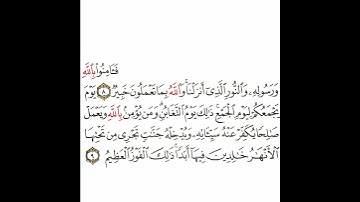 فَـَٔامِنُوا۟ بِٱللَّهِ
وَرَسُولِهِۦ وَٱلنُّورِ ٱلَّذِىٓ أَنزَلْنَا ۚ وَٱللَّهُ بِمَا تَعْمَلُونَ خَبِيرٌ ٨ يَوْمَ
يَجْمَعُكُمْ لِيَوْمِ ٱلْجَمْعِ ۖ ذَٰلِكَ يَوْمُ ٱلتَّغَابُنِ ۗ وَمَن يُؤْمِنۢ بِٱللَّهِ وَيَعْمَلْ
صَـٰلِحًا يُكَفِّرْ عَنْهُ سَيِّـَٔاتِهِۦ وَيُدْخِلْهُ جَنَّـٰتٍ تَجْرِى مِن تَحْتِهَا
ٱلْأَنْهَـٰرُ خَـٰلِدِينَ فِيهَآ أَبَدًا ۚ ذَٰلِكَ ٱلْفَوْزُ ٱلْعَظِيمُ ٩